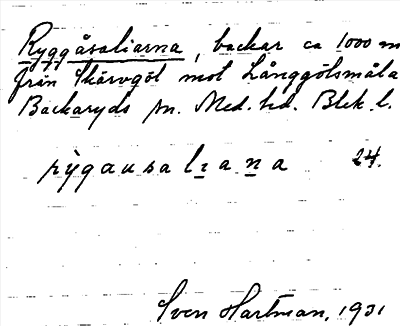 Ryggåsaliarna, backar ca 1000 m
från Skärvgöl mot Långgölsmåla
Backaryds sn. Med. hd. Blek. l.
rỳgausalɪana 24.
Sven Hartman, 1931